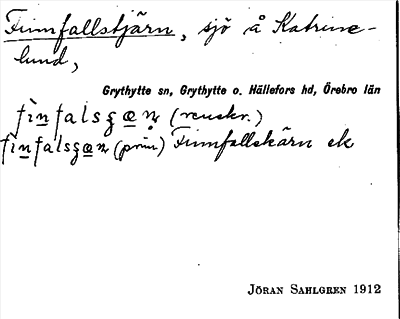 Finnfallstjärn, sjö å Katrine-
lund,
Grythytte sn, Grythytte o. Hällefors hd, Örebro län
fìn̲falsʒæ̲ɳ (renskr.)
fìn̲falsʒæ̲ɳ (prim) Finnfallskärn ek
JÖRAN SAHLGREN 1912